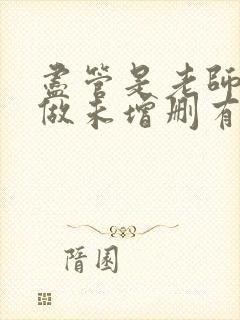 盡管是老師
做未增刪有
隋園